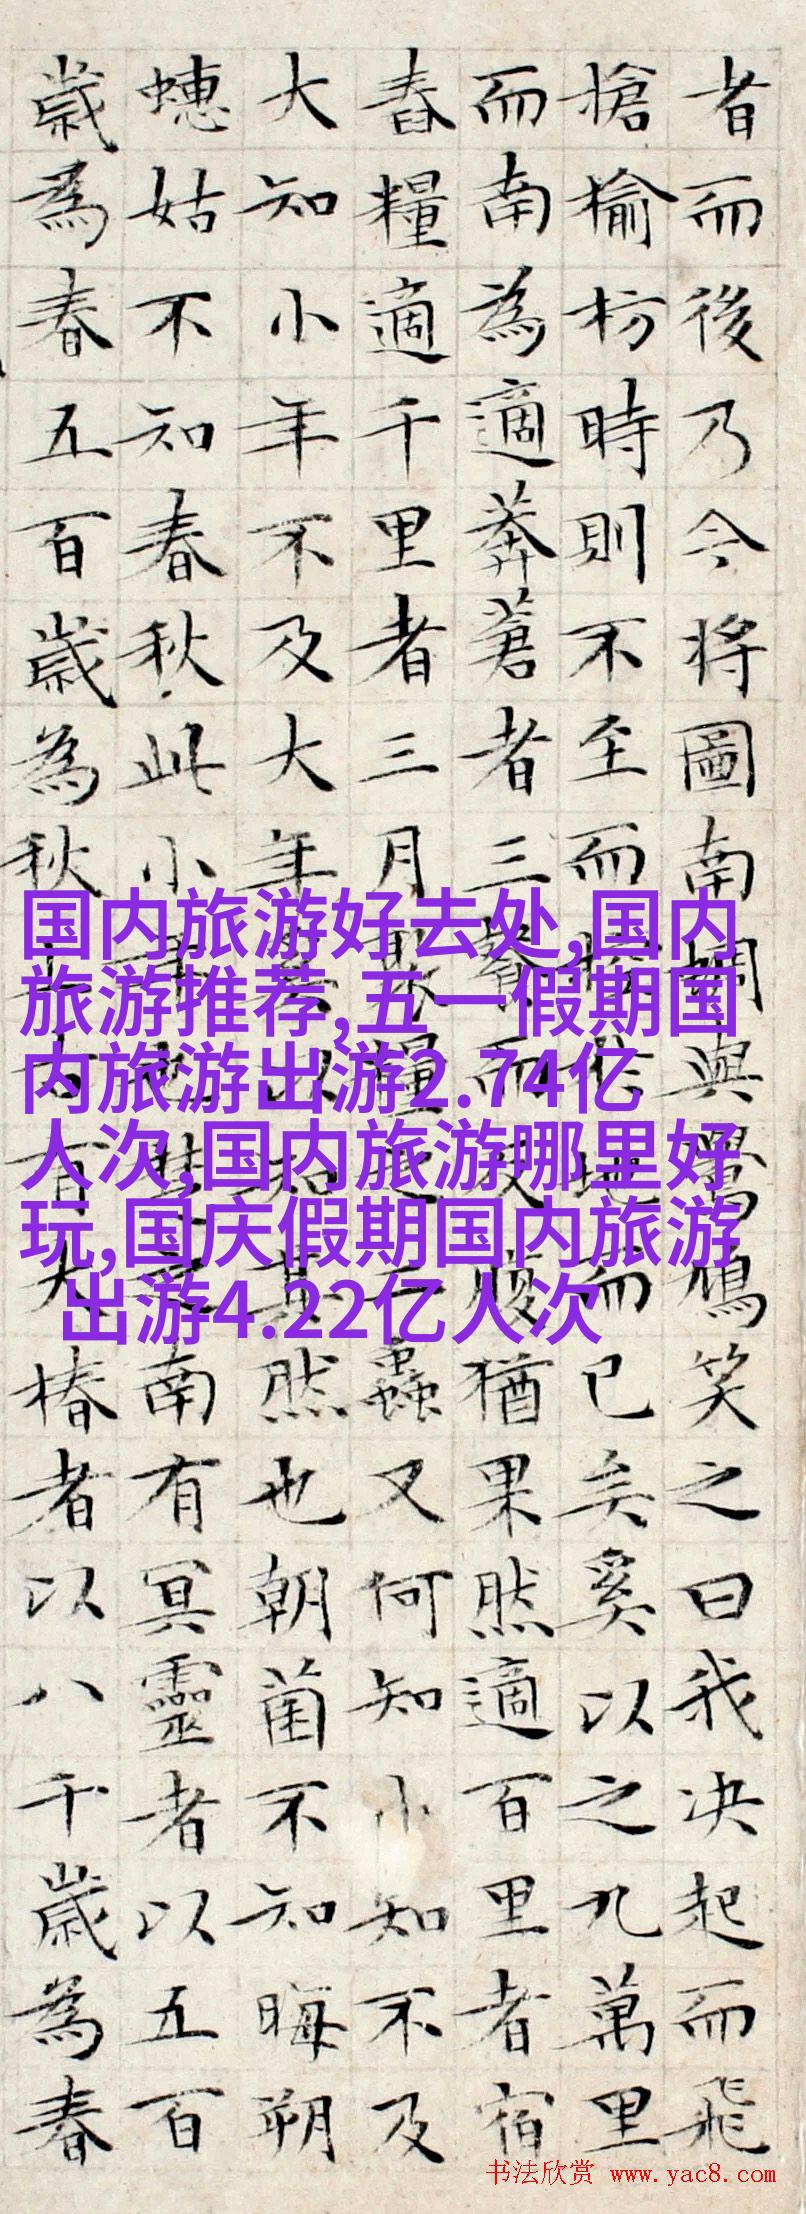 者而後乃今将圖南蜩與鷽鳩笑之曰我决起而飛
搶榆枋時則不至而控於地而已矣奚以之九萬里
而南為適莽蒼者三餐而反腹猶果然適百里者宿
舂糧適千里者三月聚糧之二蟲又何知小知不及
大知小年不及大年奚以知其然也朝菌不知晦朔
蟪蛄不知春秋此小年也楚之南有冥靈者以五百
歲為春五百歲為秋上古有大椿者以八千歲為春
国内旅游好去处,国内
旅游推荐,五一假期国
内旅游出游2.74亿
人次,国内旅游哪里好
玩,国庆假期国内旅游
出游4.22亿人次
书法欣赏 www.yac8.com